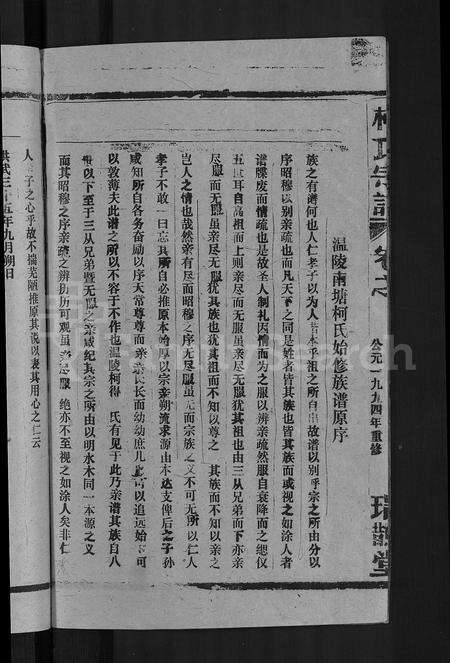 柯氏宗譜
卷之
公元一九九四年重修
瑞鵲堂
温陵南塘柯氏始修族谱原序
族之有谱何也人仁孝子以为人皆本乎祖之所自出故谱以别乎宗之所由分以
序昭穆以别亲疏也而凡天下之同是姓者皆其族也皆其族而或视之如涂人者
谱牒废而情疏也是故圣人制礼因情而为之服以辨亲疏然服自衰降而之缌仅
五世耳自高祖而上则亲尽而无服虽亲尽无服犹其祖也由三从兄弟而下亦亲
尽服而无服虽亲尽无服犹其族也犹其祖而不知以尊之 其族而不知以亲之
岂人之情也哉然亲有尽而昭穆之序无尽服虽无而宗族之义不可无所以仁人
孝子不敢一日忘其所自必推原本始厚以宗亲朔流求源由本达支俾后之子孙
咸知所自各务奋励以序天常尊尊而亲亲长长而幼幼庶几 可以追远始 可
以敦薄夫此谱之所以不容于不作也温陵柯得 氏有见于此乃亲谱其族自八
世以下至于三从兄弟暨无服之亲咸纪其宗之所由以明水木同一本源之义
而其昭穆之序亲疏之辨历历可观虽亲尽服 绝亦不至视之如涂人矣非仁
人孝子之心乎故不揣芜陋推原其说以表其用心之仁云
洪武三十五年九月朔日